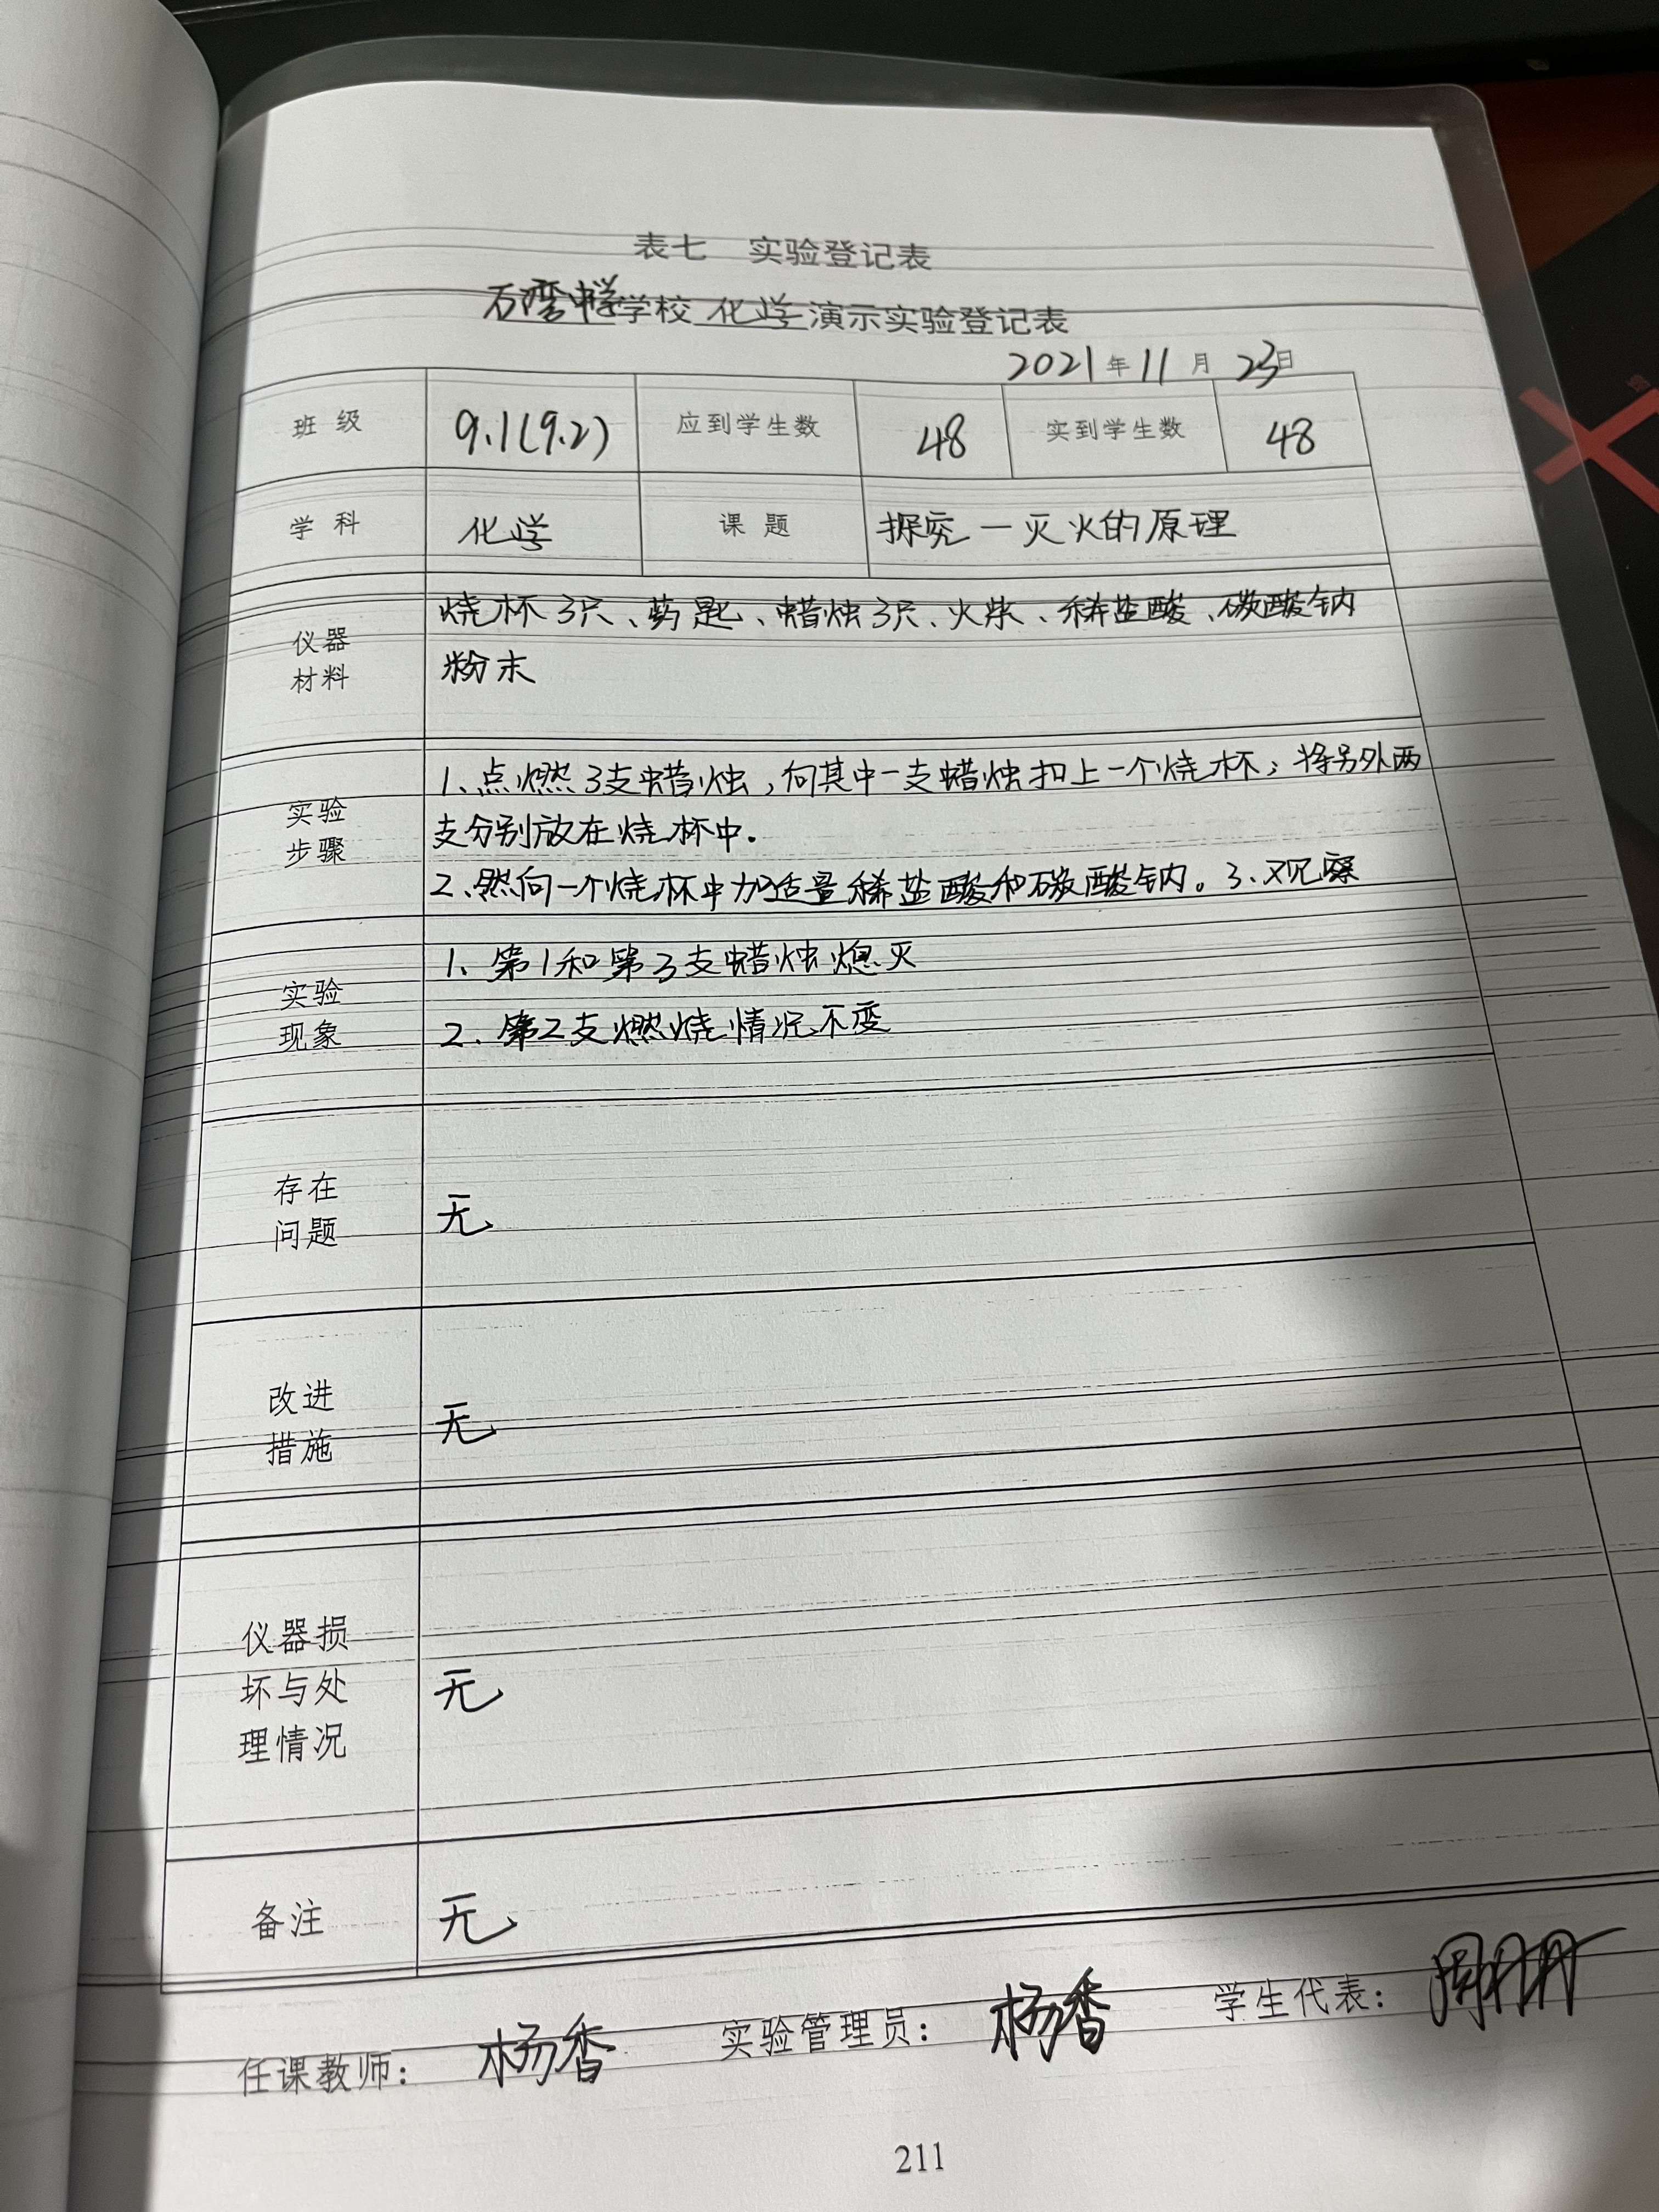 表七 实验登记表
石湾中学学校 化学 演示实验登记表
2021年11月23日
班级 9.1(9.2) 应到学生数 48 实到学生数 48
学科 化学 课题 探究一灭火的原理
仪器
材料
烧杯3只、药匙、蜡烛3只、火柴、稀盐酸、碳酸钠
粉末
实验
步骤
1、点燃3支蜡烛,向其中一支蜡烛扣上一个烧杯;将另外两
支分别放在烧杯中.
2、然向一个烧杯中加适量稀盐酸和碳酸钠。3、观察
实验
现象
1、第1和第3支蜡烛熄灭
2、第2支燃烧情况不变
存在
问题
无
改进
措施
无
仪器损
坏与处
理情况
无
备注 无
任课教师: 杨香 实验管理员: 杨香 学生代表:
211